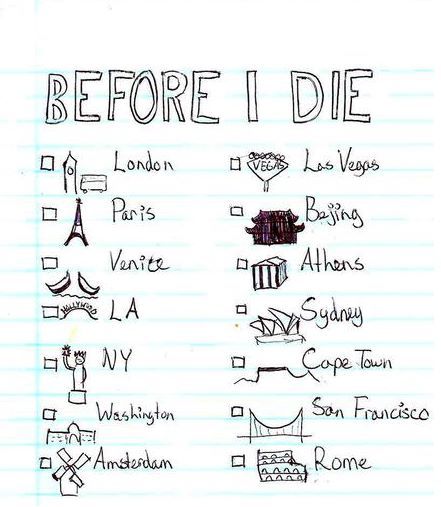 BEFORE I DIE
London
Paris
Venice
HOLLYWOOD
LA
NY
Washington
Amsterdam
VEGAS
Las Vegas
Bejing
Athens
Sydney
Cape Town
San Francisco
Rome